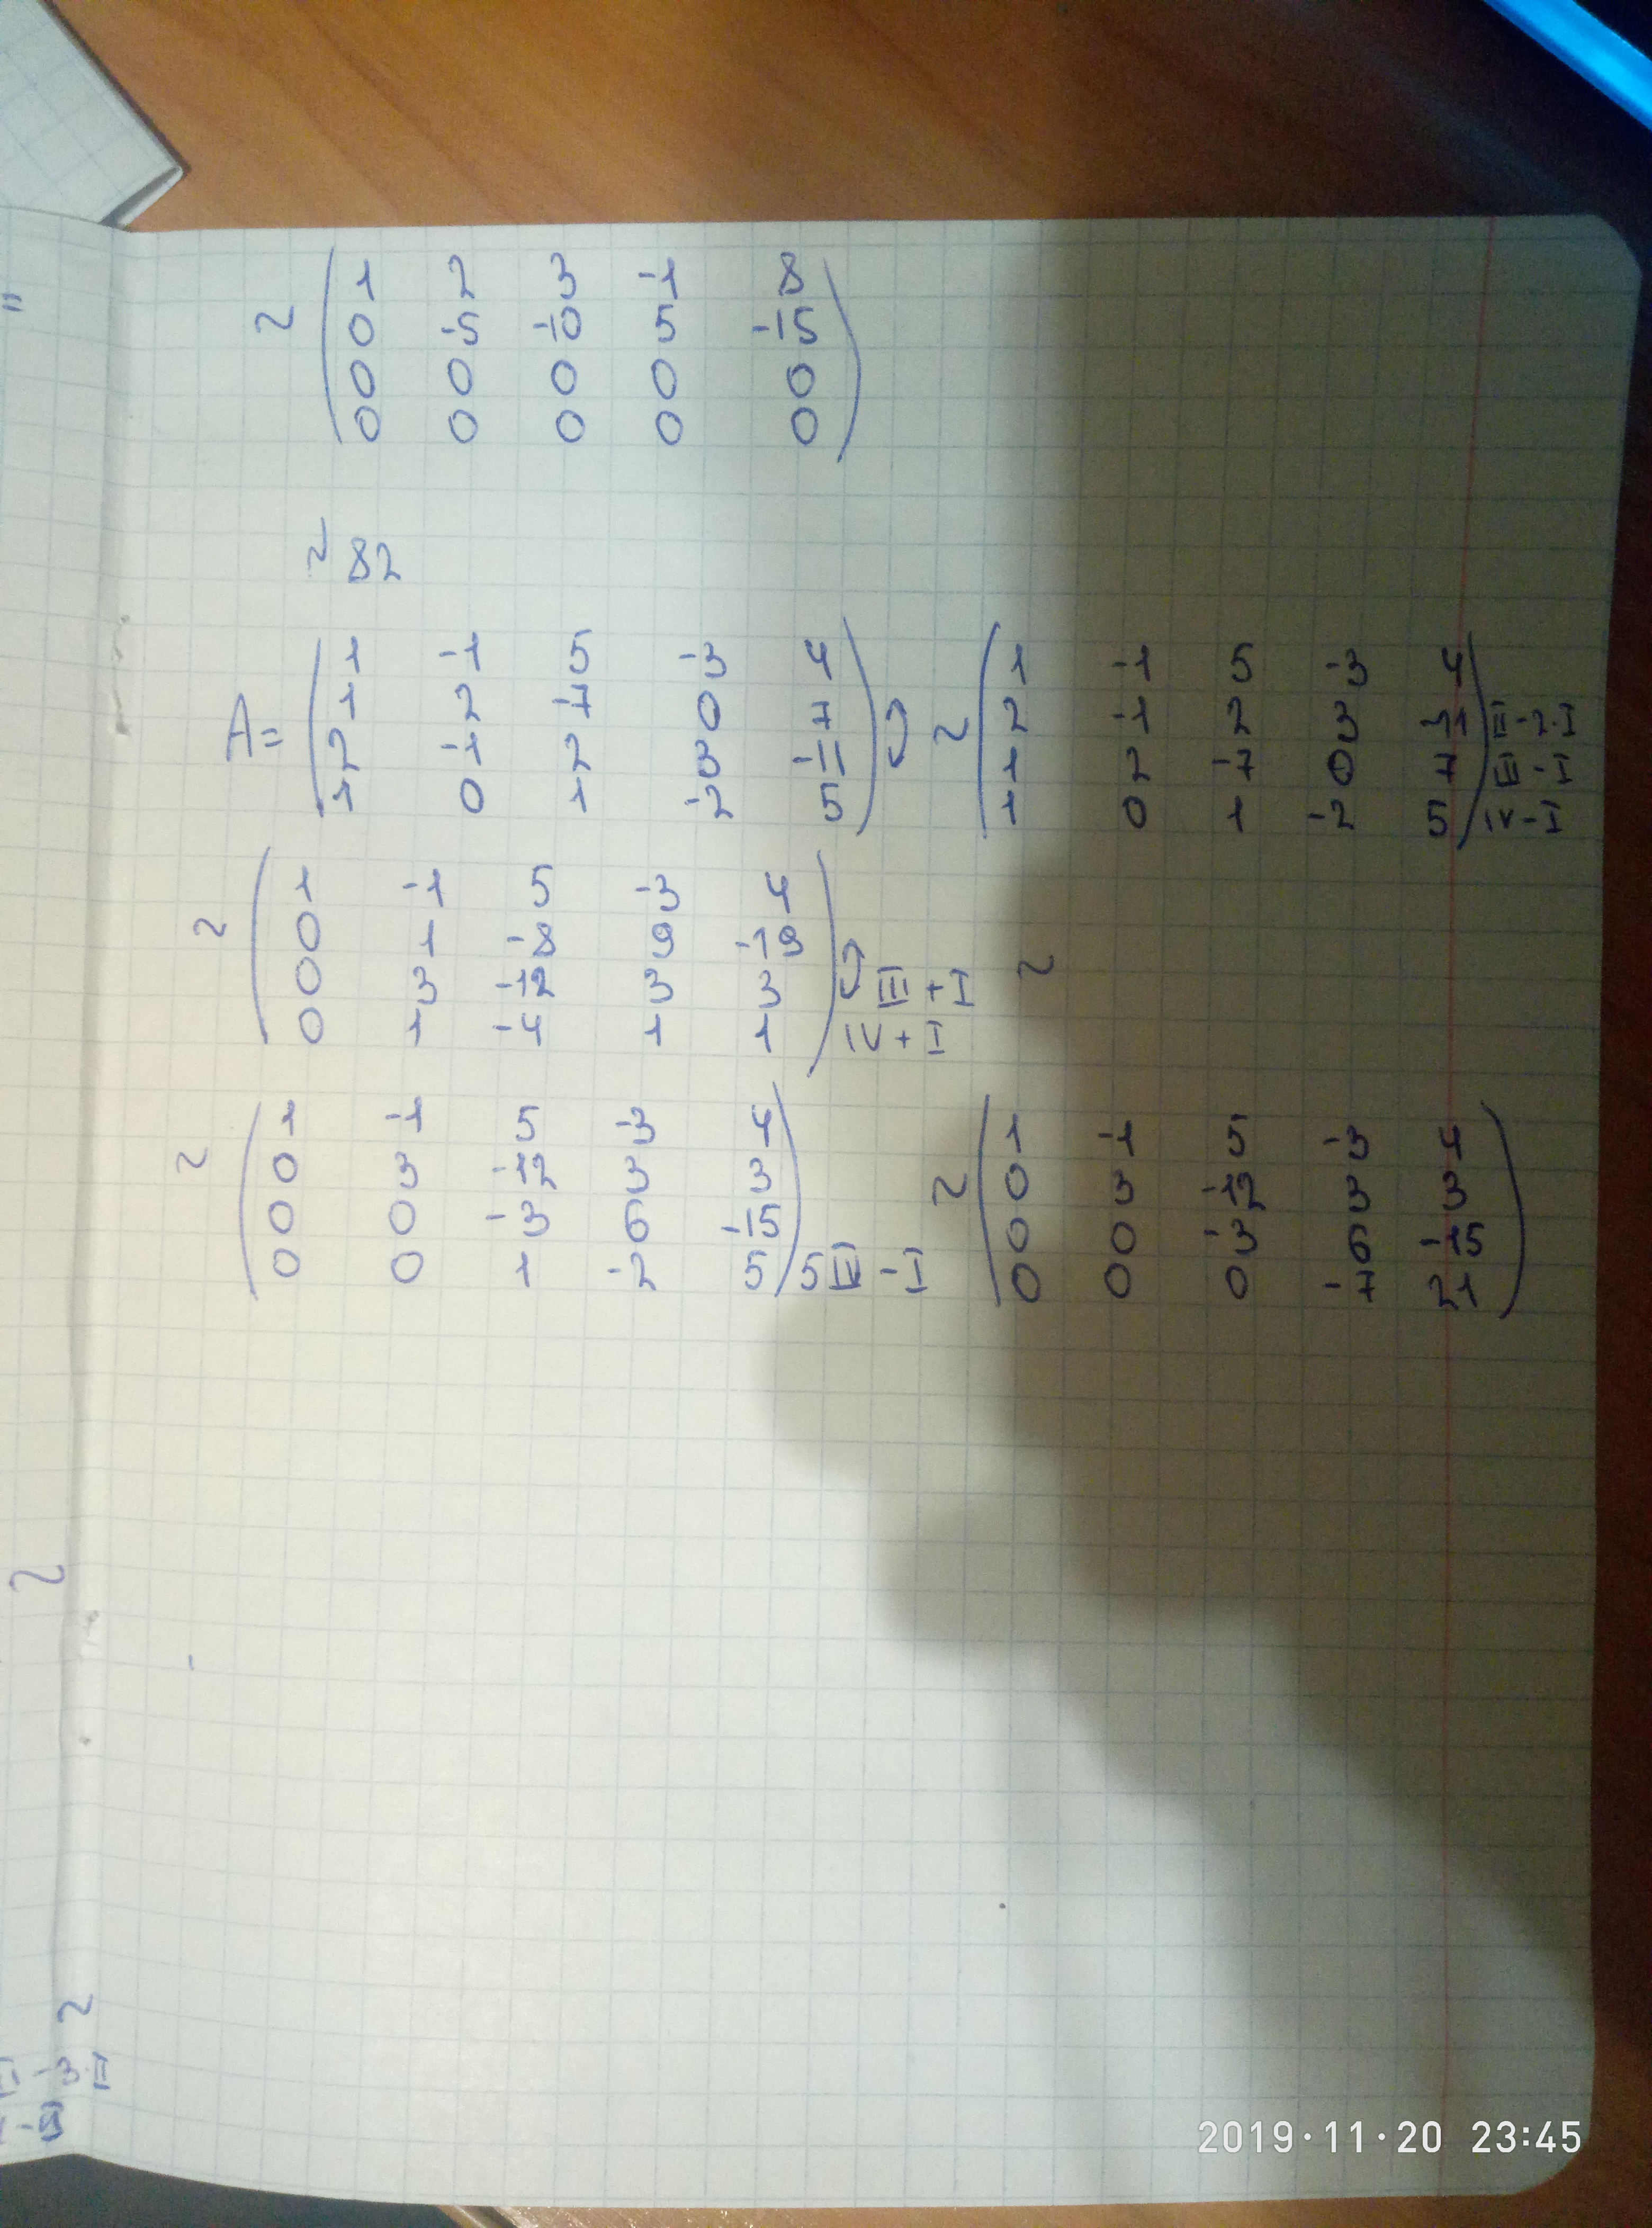 ~ ( 1 2 3 -1 8
0 -5 -10 5 -15
0 0 0 0 0
0 0 0 0 0 )
82
A = ( 1 -1 5 -3 4
1 2 -7 0 7
2 -1 2 3 -11
1 0 1 -2 5 )
~ ( 1 -1 5 -3 4
2 -1 2 3 -11 II-2·I
1 2 -7 0 7 III-I
1 0 1 -2 5 ) IV-I
~ ( 1 -1 5 -3 4
0 1 -8 9 -19
0 3 -12 3 3 III+I
0 1 -4 1 1 ) IV+I
~
~ ( 1 -1 5 -3 4
0 3 -12 3 3
0 0 -3 6 -15
0 0 1 -2 5 )
~ ( 1 -1 5 -3 4
0 3 -12 3 3
0 0 -3 6 -15
0 0 0 -7 21 )
2019·11·20 23:45